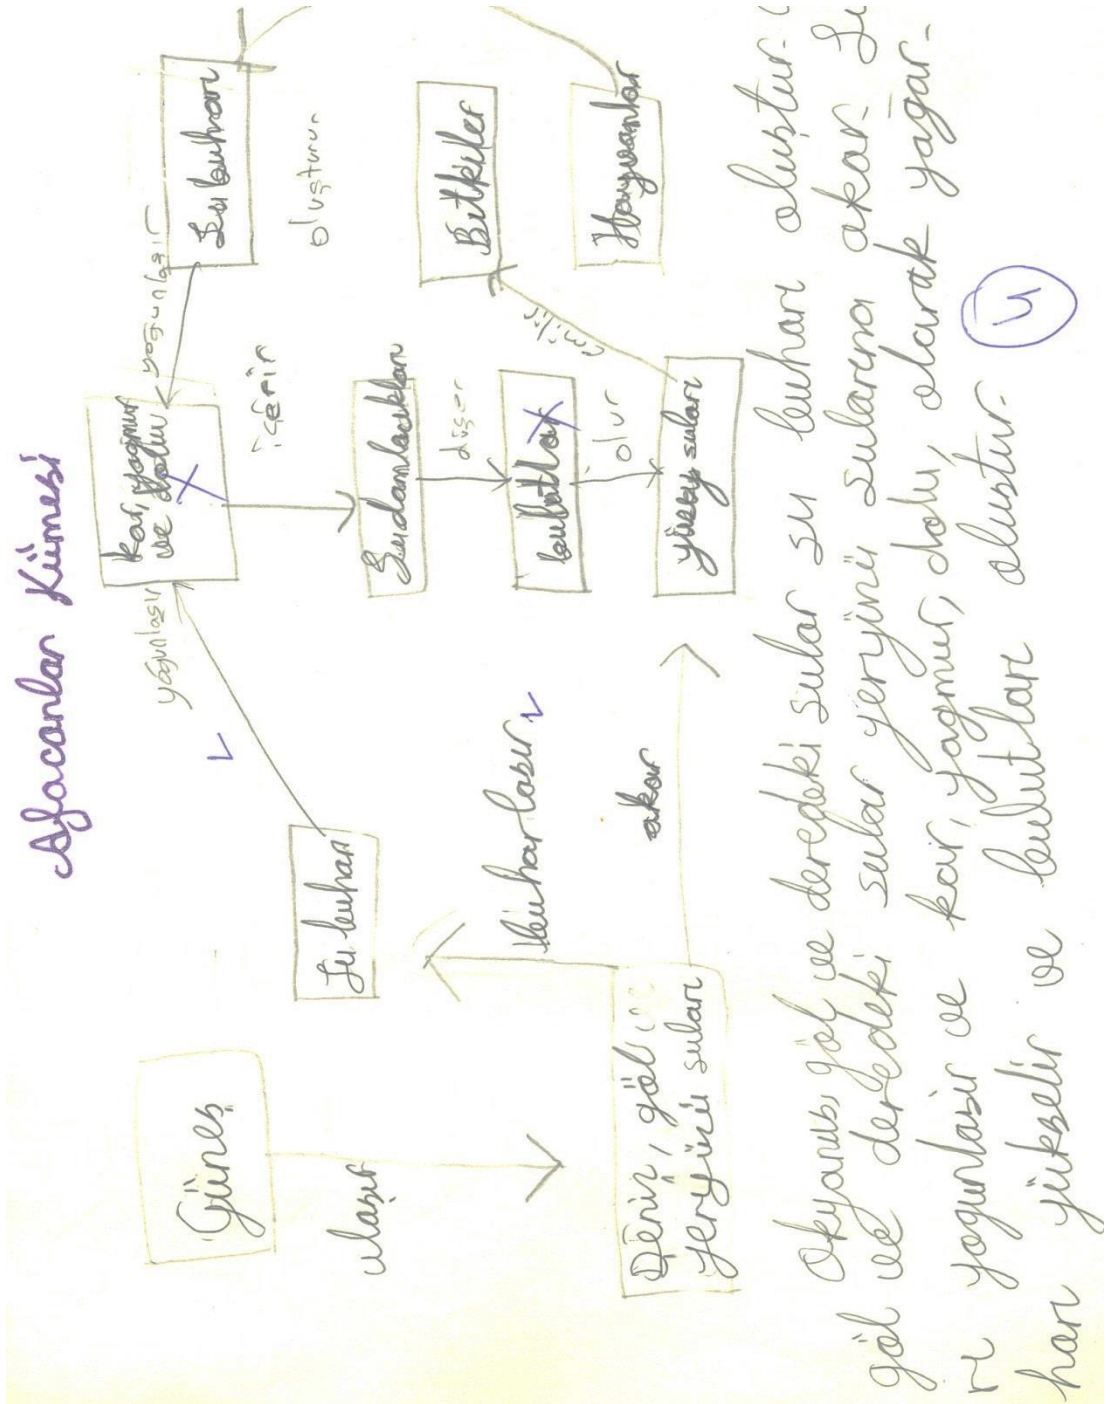 Afacanlar Kümesi
Güneş
ulaşır
Deniz, göl
yeryüzü suları
buharlaşır
akar
Su buharı
yoğunlaşır
kar, yağmur
ve dolu
yoğunlaşır
Su buharı
içerir
oluşturur
Su damlacıkları
düşer
bulutlar
olur
yüzey suları
içilir
Bitkiler
Hayvanlar
Okyanus, göl ve deredeki sular su buharı oluştur.
göl ve deredeki sular yeryüzü sularına akar. Su
rı yoğunlaşır ve kar, yağmur, dolu, olarak yağar.
harı yükselir ve bulutları oluştur.
4